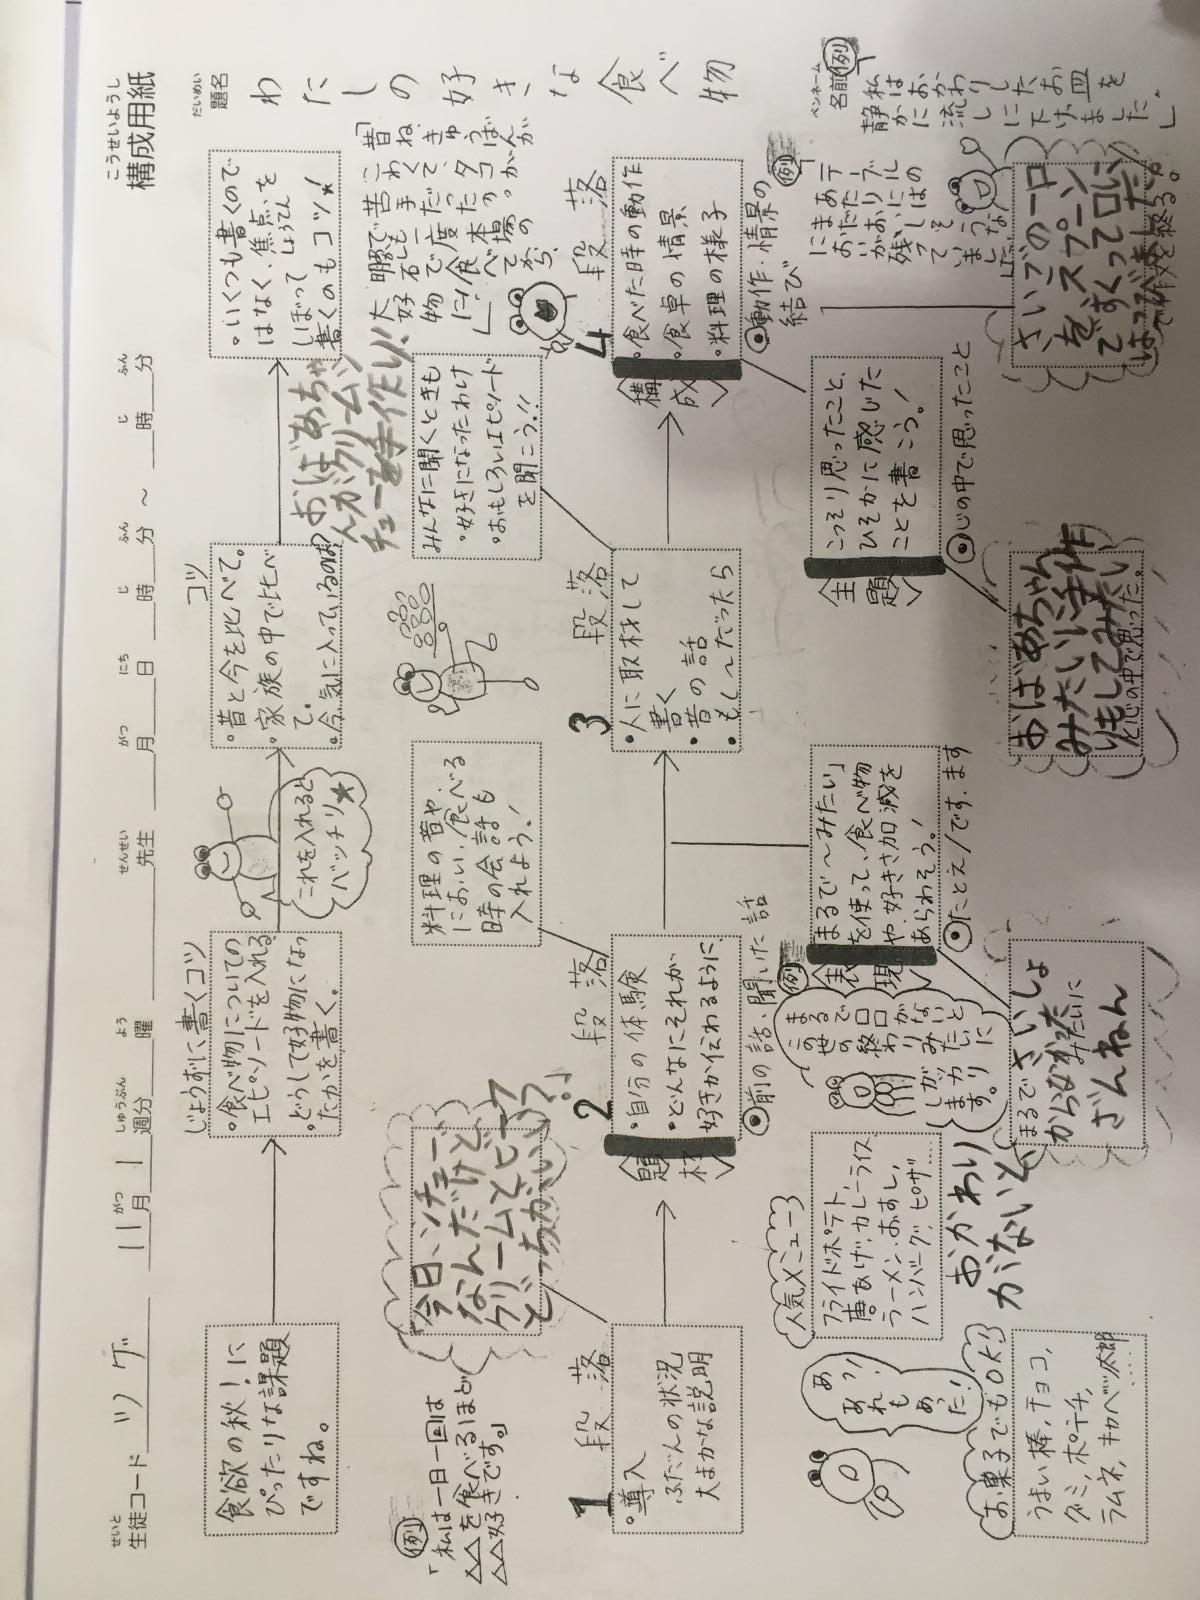 構成用紙
こうせいようし
生徒コード ツゲ 11月1週分 曜 先生 月 日 時 分 ～ 時 分
せいと がつ しゅうぶん よう せんせい がつ にち じ ふん じ ふん
題名
だいめい
わたしの好きな食べ物
食欲の秋！に
ぴったりな課題
ですね。
じょうずに書くコツ
・食べ物についての
エピソードを入れる
・どうして好物になっ
たかを書く。
これを入れると
バッチリ★
コツ
・昔と今を比べて。
・家族の中で比べ
て。
・今、気に入っているのは？
・いくつも書くので
はなく、焦点を
しょうてん
しぼって
書くのもコツ★！
おばあちゃ
んがクリームシ
チューを手作り、
例
「私は一日一回は
△△を食べるほど
△△好きです。」
「今日、シチュー
なんだけど
クリームとビーフ
どっちがいい？」
料理の音や、
におい、食べる
時の会話も
入れよう！
みんなに聞くときも
・好きになったわけ
・おもしろいエピソード
を聞こう!!
1 段落
・導入
ふだんの状況
大まかな説明
2 段落
〈題材〉
・自分の体験
・どんなにそれが
好きか伝わるように
◉前の話、聞いた話
3 段落
・人に取材して
書く
・昔の話
・もし～だったら
4 段落
〈構成〉
・食べた時の動作
・食卓の情景
・料理の様子
◉動作・情景の
結び
人気メニュー
フライドポテト、
唐あげ、カレーライス
ラーメン、おすし、
ハンバーグ、ピザ……
例
まるで
この世
の終
わりみたいに
〈表現〉
まるで～みたい」
を使って、食べ物
や、好きさ加減を
あらわそう！
◉たとえ／です。ます
〈主題〉
こっそり思ったこと、
ひそかに感じた
ことを書こう！
◉心の中で思ったこと
例
テーブル
には
ペンネーム
名前
例
私は
おかわり
した
お皿を
静かに
流しに
下げました。
あっ！
あれも
あった！
お菓子でもOK！
うまい棒、チョコ、
グミ、ポテチ、
ラムネ、キャベツ太郎
……
おかわり
がないと、
まるでさいしょ
からなかった
みたいに
ざんねん
おばあちゃん
みたいに手作
りもしてみたい
と心の中で思った。
さいごの一口
を、スプーン
ですくって口い
っぱいに
で作文を終る。